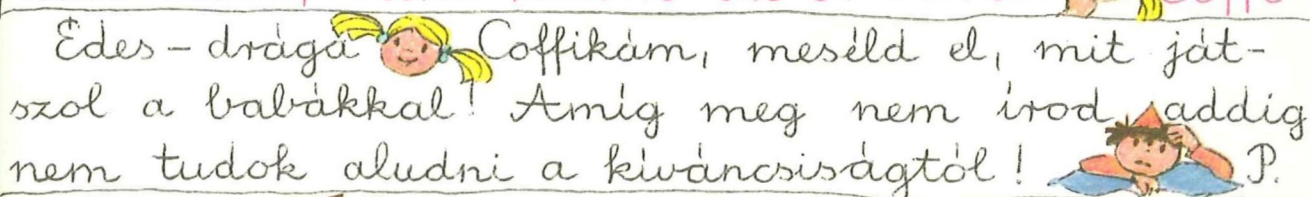 Édes-drága Coffikám, meséld el, mit ját-
szol a babákkal! Amíg meg nem írod, addig
nem tudok aludni a kíváncsiságtól! P.